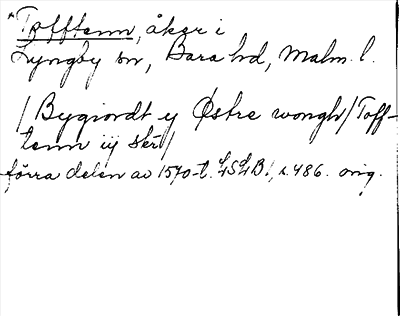 *Tofftenn, åker i
Lyngby sn, Bara hd, Malm. l.
/Bygiordt y Østre wongh/Toff-
tenn iij sker/
förra delen av 1570-t. LSLB, s. 486. orig.